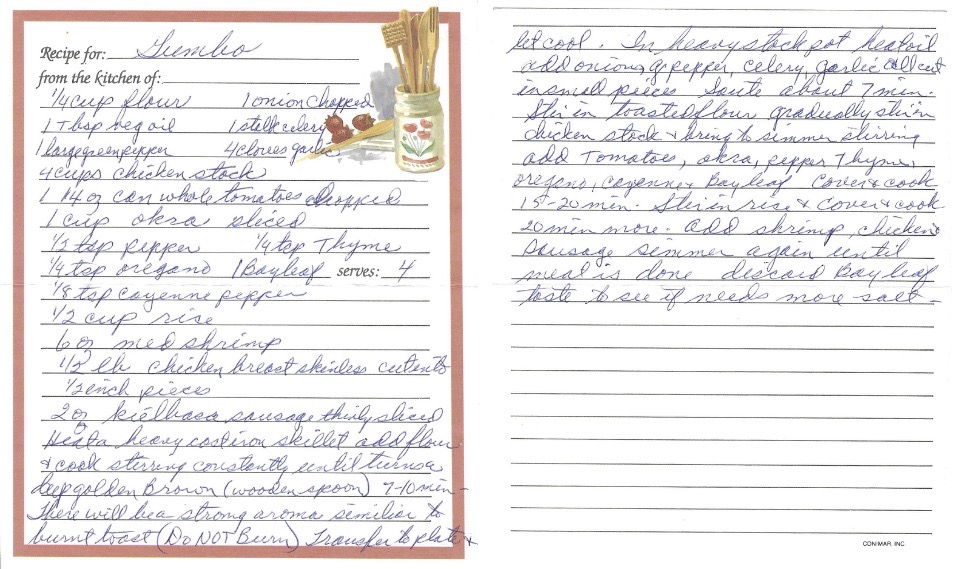 Recipe for: Gumbo
from the kitchen of:
1/4 cup flour 1 onion chopped
1 Tbsp veg oil 1 stalk celery
1 large green pepper 4 cloves garlic
4 cups chicken stock
1 14 oz can whole tomatoes chopped
1 cup okra sliced
1/2 tsp pepper 1/4 tsp Thyme
1/4 tsp oregano 1 Bayleaf serves: 4
1/8 tsp cayenne pepper
1/2 cup rise
6 oz med shrimp
1/2 lb chicken breast skinless cut into
1/2 inch pieces
2 oz kielbasa sausage thinly sliced
Heat a heavy cast iron skillet add flour
& cook stirring constantly until turns a
deep golden Brown (wooden spoon) 7-10 min -
There will be a strong aroma similiar to
burnt toast (Do NOT Burn) Transfer to plate &
let cool. In heavy stock pot heat oil
add onions, gr pepper, celery, garlic all cut
in small pieces Saute about 7 min.
Stir in toasted flour gradually stir in
chicken stock & bring to simmer stirring
add Tomatoes, okra, pepper Thyme,
oregano, cayenne & Bayleaf Cover & cook
15-20 min. Stir in rise & Cover & cook
20 min more. add shrimp, chicken &
sausage simmer again until
meal is done discard Bay leaf
taste to see if needs more salt -
CONIMAR, INC.